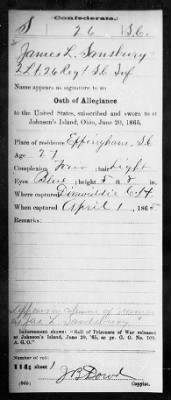 Confederate.
S 26 S.C.
James L. Sansbury
2 Lt. 26 Regt S.C. Inf.
Name appears as signature to an
Oath of Allegiance
to the United States, subscribed and sworn to at
Johnson's Island, Ohio, June 20, 1865.
Place of residence Effingham, S.C.
Age 27
Complexion ; hair Light
Eyes Blue; height 5 ft. 8 in.
Where captured Dinwiddie C.H.
When captured April 1, 1865
Remarks:
Appears in column of names
as Jas. L. Sandsbury
Indorsement shows: "Roll of Prisoners of War released
at Johnson's Island, June 20, '65, as pr. G. O. No. 109,
A. G. O."
Number of roll:
114; sheet 1
J B Dowd
Copyist.